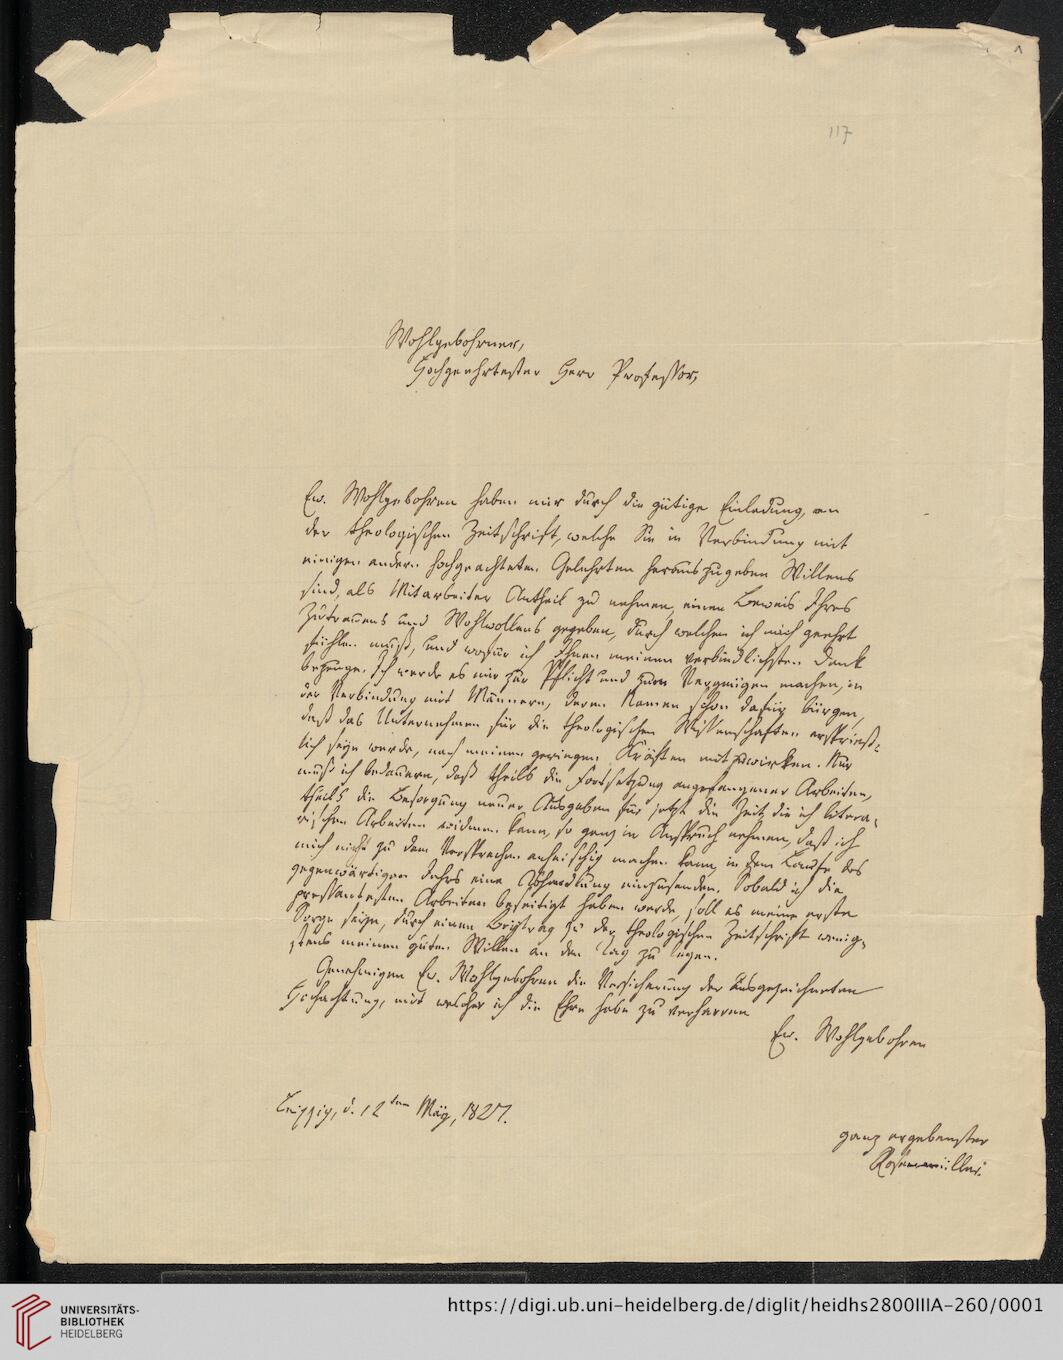 117
Wohlgebohrner,
Hochgeehrtester Herr Professor,
Ew. Wohlgebohren haben mir durch die gütige Einladung, an
der theologischen Zeitschrift, welche Sie in Verbindung mit
einigen andern hochgeachteten Gelehrten herauszugeben Willens
sind, als Mitarbeiter Antheil zu nehmen, einen Beweis Ihres
Zutrauens und Wohlwollens gegeben, durch welchen ich mich geehrt
fühlen muß, und wofür ich Ihnen meinen verbindlichsten Dank
bezeuge. Ich werde es mir zur Pflicht und zum Vergnügen machen, in
der Verbindung mit Männern, deren Namen schon dafür bürgen,
daß das Unternehmen für die theologischen Wissenschaften ersprieß-
lich seyn werde, nach meinen geringen Kräften mitzuwirken. Nur
muß ich bedauern, daß theils die Fortsetzung angefangener Arbeiten,
theils die Besorgung neuer Ausgaben für jetzt die Zeit, die ich litera-
rischen Arbeiten widmen kann, so ganz in Anspruch nehmen, daß ich
mich nicht zu dem Versprechen anheischig machen kann, in dem Laufe des
gegenwärtigen Jahrs eine Abhandlung einzusenden. Sobald ich die
pressantesten Arbeiten beseitigt haben werde, soll es meine erste
Sorge seyn, durch einen Beytrag zu der theologischen Zeitschrift wenig-
stens meinen guten Willen an den Tag zu legen.
Genehmigen Ew. Wohlgebohren die Versicherung der ausgezeichneten
Hochachtung, mit welcher ich die Ehre habe zu verharren
Ew. Wohlgebohren
Leipzig, d. 12ten May, 1827.
ganz ergebenster
Rosenmüller.
UNIVERSITÄTS-
BIBLIOTHEK
HEIDELBERG
https://digi.ub.uni-heidelberg.de/diglit/heidhs2800IIIA-260/0001